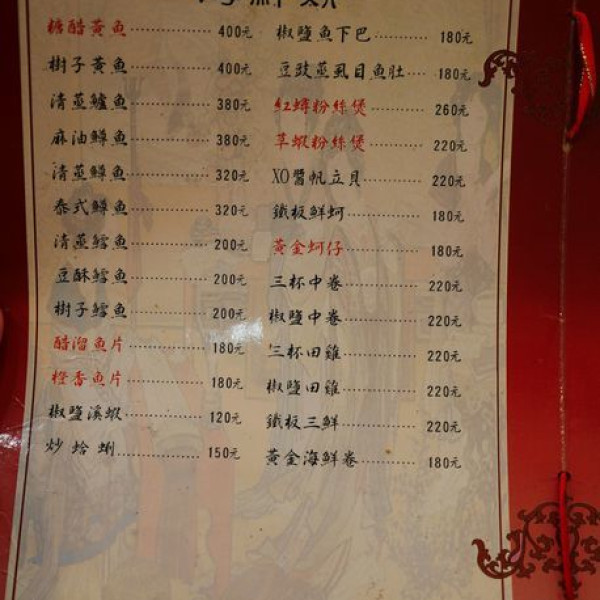 糖醋黃魚 400元
樹子黃魚 400元
清蒸鱸魚 380元
麻油鱒魚 380元
清蒸鱒魚 320元
泰式鱒魚 320元
清蒸鱈魚 200元
豆酥鱈魚 200元
樹子鱈魚 200元
醋溜魚片 180元
橙香魚片 180元
椒鹽溪蝦 120元
炒蛤蜊 150元
椒鹽魚下巴 180元
豆豉蒸虱目魚肚 180元
紅蟳粉絲煲 260元
草蝦粉絲煲 220元
XO醬帆立貝 220元
鐵板鮮蚵 180元
黃金蚵仔 180元
三杯中卷 220元
椒鹽中卷 220元
三杯田雞 220元
椒鹽田雞 220元
鐵板三鮮 220元
黃金海鮮卷 180元